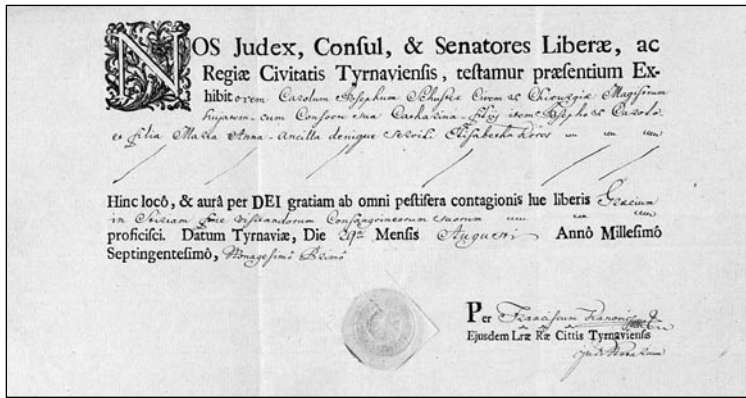 NOS Judex, Conſul, & Senatores Liberæ, ac
Regiæ Civitatis Tyrnavienſis, teſtamur præſentium Ex-
hibitorem Carolum Josephum Schuster Civem et Chirurgiæ Magistrum
hujatem cum Consorte sua Catharina filijs item Josepho et Carolo
et filia Maria Anna Ancilla denique Elisabetha
Hinc locô, & aurâ per DEI gratiam ab omni peſtifera contagionis lue liberis Græcium
in Stiriam fine visitandorum Consangvineorum suorum
proficiſci. Datum Tyrnaviæ, Die 29na Menſis Augusti Annô Milleſimô
Septingenteſimô, Nonagesimô Primô
Per Franciscum
Ejusdem Lræ Ræ Cittis Tyrnavienſis